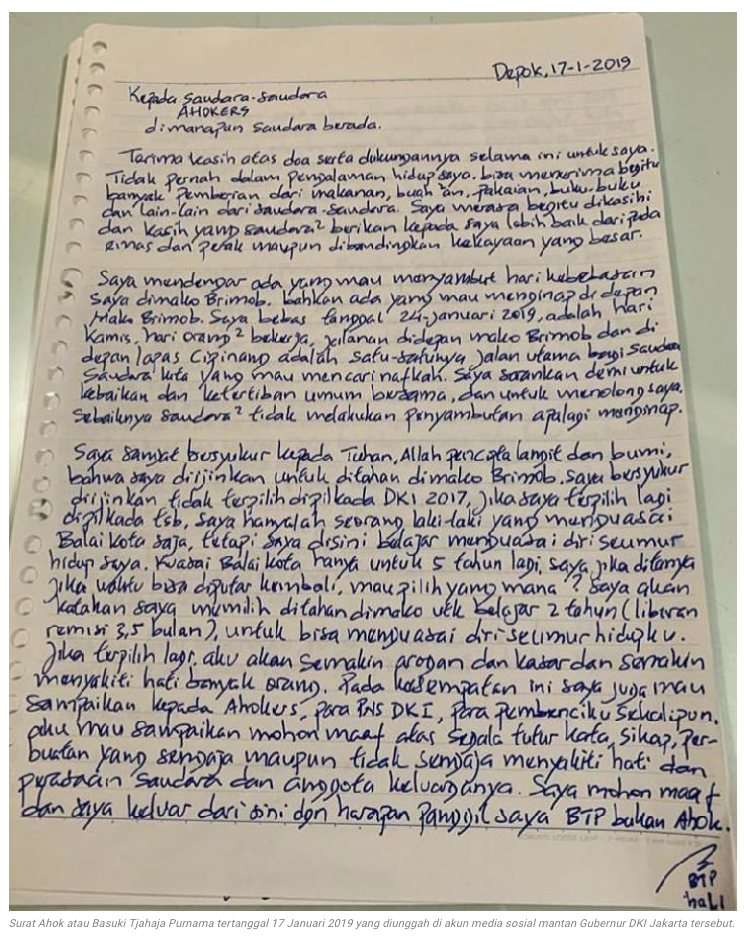 Depok, 17-1-2019
Kepada Saudara-Saudara
AHOKERS
dimanapun Saudara berada.
Tarima kasih atas doa serta dukungannya selama ini untuk saya.
Tidak pernah dalam pengalaman hidup saya. bisa menerima begitu
banyak pemberian dari makanan, buah²an, pakaian, buku-buku
dan lain-lain dari saudara-saudara. Saya merasa begitu dikasihi
dan kasih yang saudara² berikan kepada saya lebih baik daripada
emas dan perak maupun dibandingkan kekayaan yang besar.
Saya mendengar ada yang mau menyambut hari kebebasan
saya dimako Brimob. bahkan ada yang mau menginap di depan
Mako Brimob. Saya bebas tanggal 24-januari 2019, adalah hari
Kamis, hari orang² bekerja, jalanan didepan mako Brimob dan di
depan lapas Cipinang adalah satu-satunya jalan utama bagi Saudara
Saudara kita yang mau mencari nafkah. Saya sarankan demi untuk
kebaikan dan ketertiban umum bersama, dan untuk menolong saya.
Sebaiknya saudara² tidak melakukan penyambutan apalagi menginap.
Saya sangat bersyukur kepada Tuhan, Allah pencipta langit dan bumi,
bahwa saya diijinkan untuk ditahan dimako Brimob. Saya bersyukur
diijinkan tidak terpilih dipilkada DKI 2017, jika saya terpilih lagi
dipilkada tsb, saya hanyalah seorang laki-laki yang menguasai
Balai Kota saja, tetapi saya disini belajar menguasai diri seumur
hidup saya. Kuasai Balai Kota hanya untuk 5 tahun lagi, saya jika ditanya
jika waktu bisa diputar kembali, mau pilih yang mana? Saya akan
katakan saya memilih ditahan dimako utk belajar 2 tahun (liburan
remisi 3,5 bulan), untuk bisa menguasai diri seumur hidupku.
Jika terpilih lagi, aku akan semakin arogan dan kasar dan semakin
menyakiti hati banyak orang. Pada kesempatan ini saya juga mau
sampaikan kepada Ahokers, para PNS DKI, para pembenciku sekalipun.
aku mau sampaikan mohon maaf atas segala tutur kata, sikap, per-
buatan yang sengaja maupun tidak sengaja menyakiti hati dan
perasaan saudara dan anggota keluarganya. Saya mohon maaf
dan saya keluar dari sini dgn harapan panggil saya BTP bukan Ahok.
BTP
Surat Ahok atau Basuki Tjahaja Purnama tertanggal 17 Januari 2019 yang diunggah di akun media sosial mantan Gubernur DKI Jakarta tersebut.